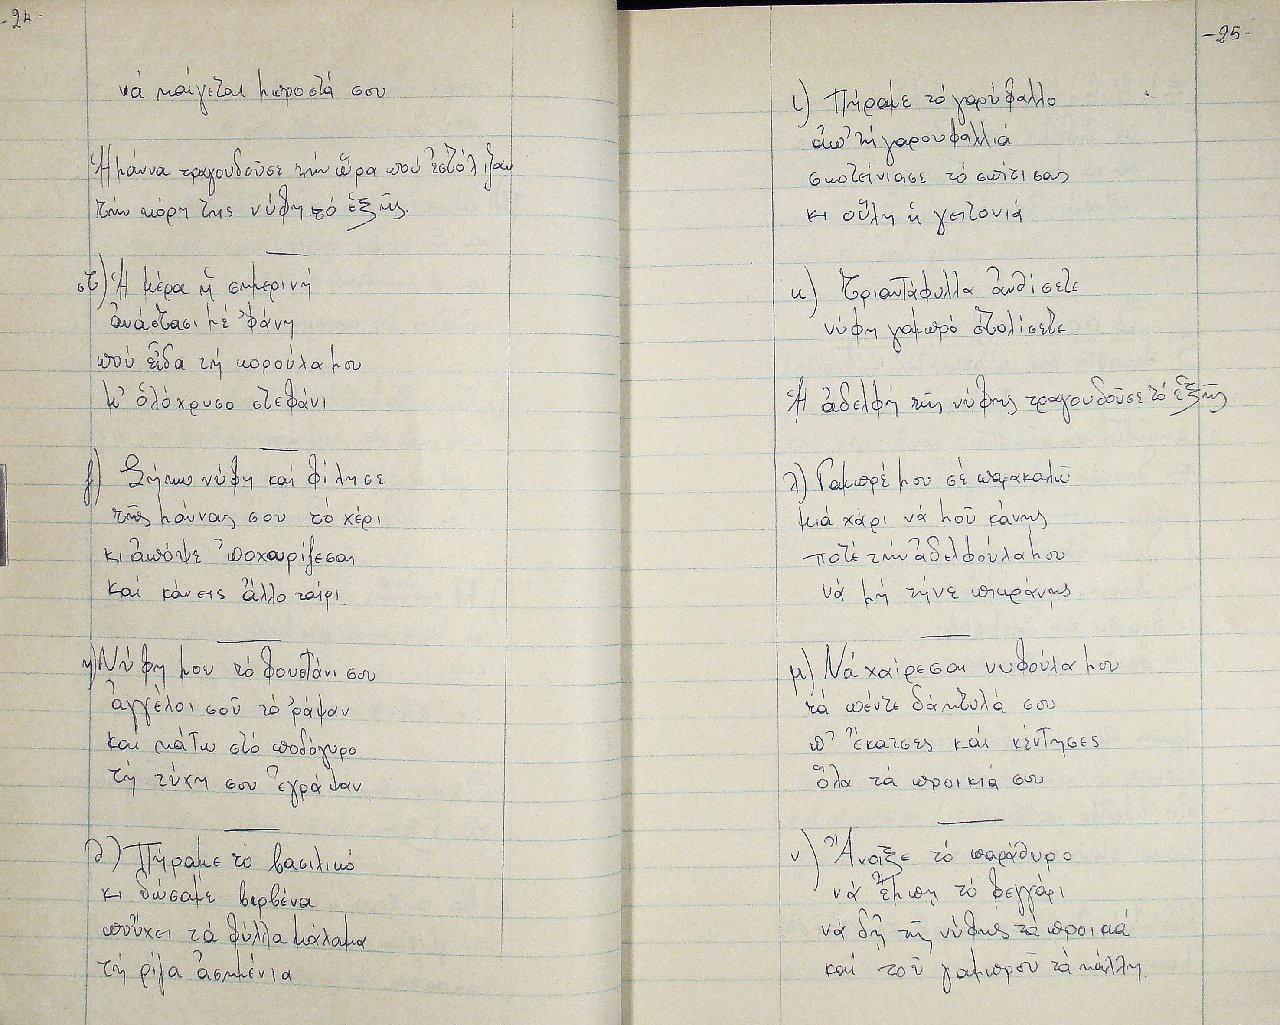 -24
νά καίγεται μπροστά σου
Ἡ μάννα τραγουδοῦσε τήν ὥρα πού ἐστόλιζαν
τήν κόρη της νύφη τό ἑξῆς.
στ) Ἡ μέρα ἡ σημερινή
ἀνάστασι μέ 'φάνη
πού εἶδα τή κορούλα μου
μ' ὁλόχρυσο στεφάνι
ζ) Σήκω νύφη καί φίλησε
τῆς μάννας σου τό χέρι
κι ἀπόψε ἀποχωρίζεσαι
καί κάνεις ἄλλο ταίρι.
η) Νύφη μου τό φουστάνι σου
ἀγγέλοι σοῦ τό ράψαν
καί κάτω στό ποδόγυρο
τή τύχη σου ἐγράψαν
θ) Πήραμε τό βασιλικό
κι δώσαμε βερβένα
ποὔχει τά φύλλα μάλαμα
τή ρίζα ἀσημένια
-25-
ι) Πήραμε τό γαρύφαλλο
ἀπ' τή γαρουφαλλιά
σκοτείνιασε τό σπίτι σας
κι οὕλη ἡ γειτονιά
κ) Τριαντάφυλλα ἀνθίσετε
νύφη γαμπρό στολίσετε
Ἡ ἀδελφή τῆς νύφης τραγουδοῦσε τό ἑξῆς
λ) Γαμπρέ μου σέ παρακαλῶ
μιά χάρι νά μοῦ κάνης
ποτέ τήν ἀδελφούλα μου
νά μή τήνε πικράνης.
μ) Νά χαίρεσαι νυφούλα μου
τά πέντε δάκτυλά σου
π' ἔκατσες καί κέντησες
ὅλα τά προικιά σου
ν) Ἄνοιξε τό παράθυρο
νά ἔμπη τό φεγγάρι
νά δῆ τῆς νύφης τά προικιά
καί τοῦ γαμπροῦ τά κάλλη